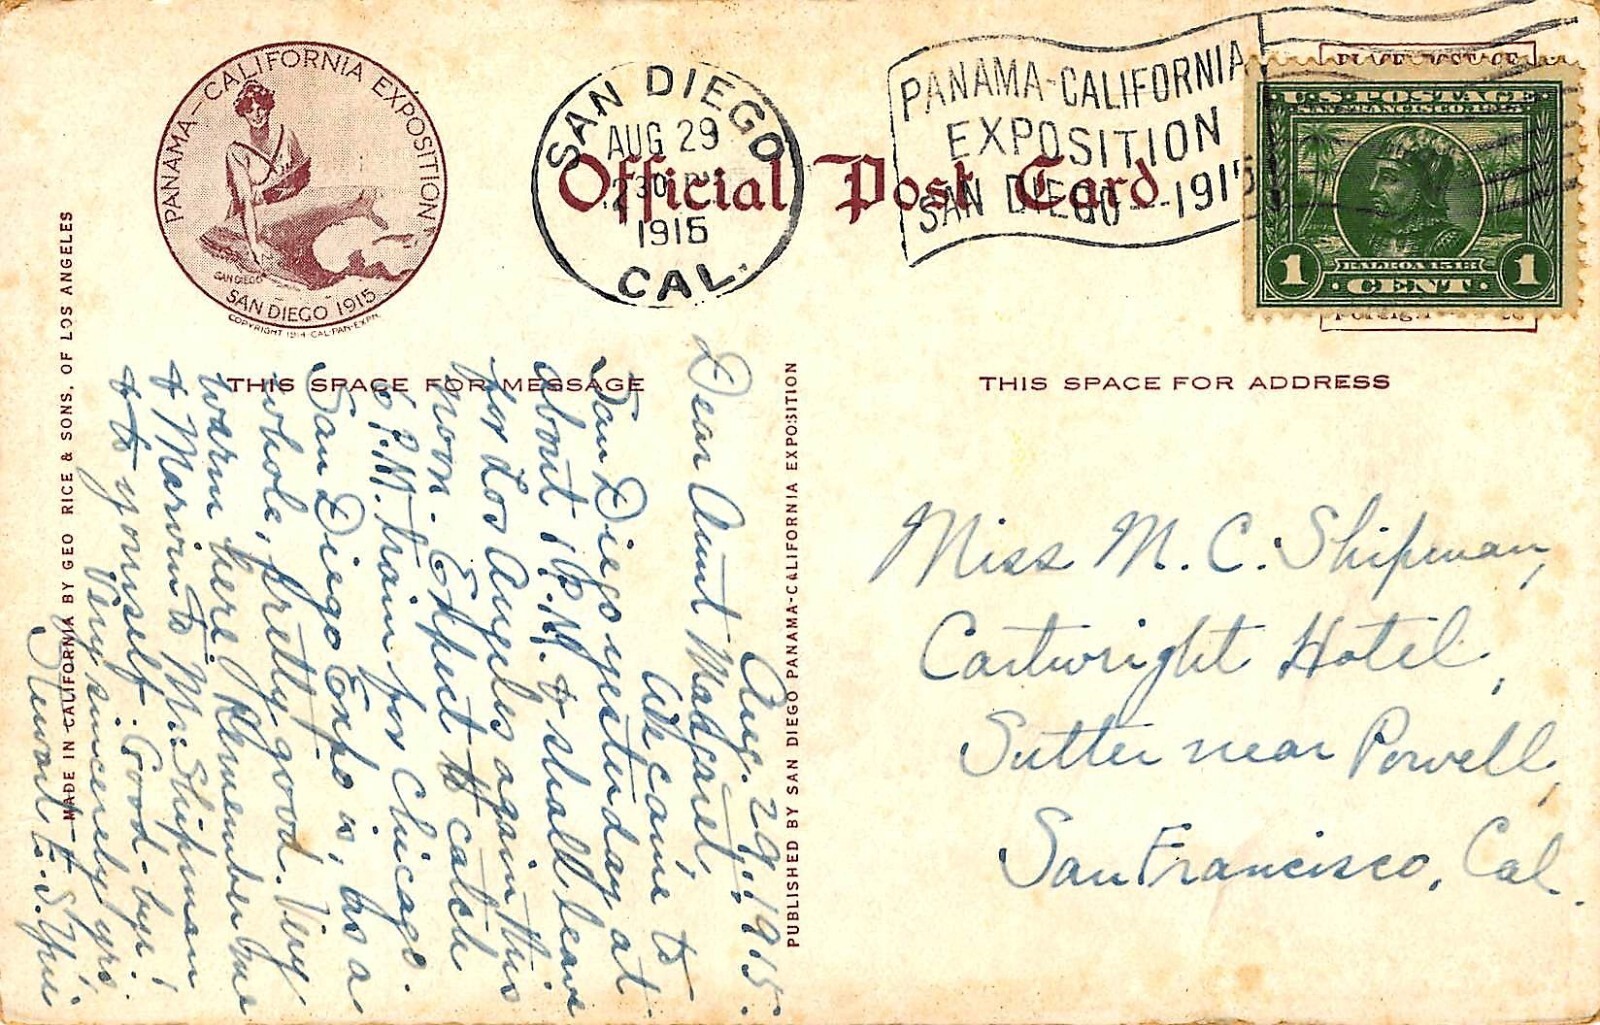 PANAMA-CALIFORNIA EXPOSITION
SAN DIEGO
SAN DIEGO 1915
COPYRIGHT 1914-CAL-PAN-EXPN.
SAN DIEGO
AUG 29
1915
CAL.
Official Post Card
PANAMA-CALIFORNIA
EXPOSITION
SAN DIEGO-1915
U.S. POSTAGE
SAN FRANCISCO 1915
BALBOA 1513
1 CENT 1
Foreign
THIS SPACE FOR MESSAGE
THIS SPACE FOR ADDRESS
MADE IN CALIFORNIA BY GEO RICE & SONS, OF LOS ANGELES
PUBLISHED BY SAN DIEGO PANAMA-CALIFORNIA EXPOSITION
Aug. 29: 1915:
Dear Aunt Madgaret,
We came to
San Diego yesterday at
about 1 P.M. & shall leave
for Los Angeles again this
noon. Expect to catch
6 P.M. train for Chicago.
San Diego Expo is, as a
whole, pretty good. Very
warm here. Remember me
& Marvin to Mr. Shipman
& to yourself. Good-bye!
Very sincerely yrs.
Stewart E. S.
Miss M. C. Shipman,
Cartwright Hotel,
Sutter near Powell,
San Francisco, Cal.